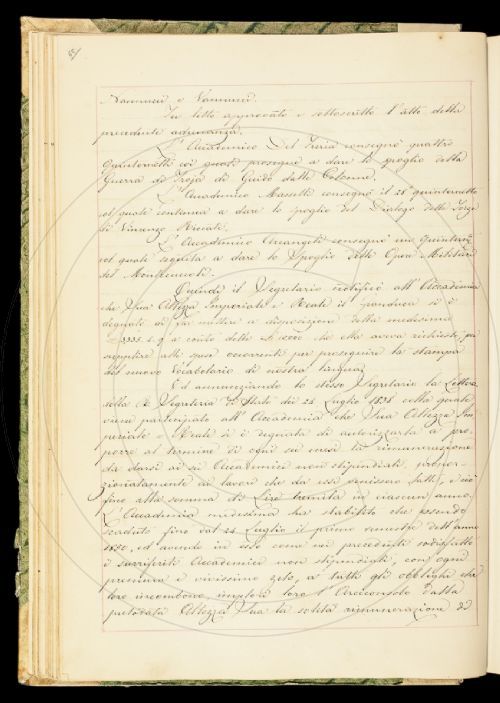 Nannucci e Vannucci.
Fu letto approvato e sottoscritto l'atto della
precedente adunanza.
L'Accademico Del Furia consegnò quattro
Quinternetti coi quali prosegue a dare lo spoglio della
Guerra di Troja di Guido dalle Colonne.
L'Accademico Masselli consegnò il 28 quinternetto
col quale continua a dare lo spoglio del Dialogo delle
di Vincenzo
L'Accademico Arcangeli consegnò un Quintern.
col quale seguita a dare lo Spoglio delle Opere Militari
del Montecuccoli.
Quindi il Segretario notificò all'Accademia
che Sua Altezza Imperiale e Reale il Granduca si è
degnato di far mettere a disposizione della medesima
3333. 6. 8 a conto delle che ella aveva richieste per
supplire alle spese occorrenti per proseguire la stampa
del nuovo Vocabolario di nostra lingua.
Ed annunziando lo stesso Segretario la Lettera
della R. Segreteria di Stato dei 24 Luglio colla quale
viene partecipato all'Accademia che Sua Altezza Im-
periale e Reale si è degnata di autorizzarla a pro-
porre al termine di ogni sei mesi la rimunerazione
da darsi ai sei Accademici non stipendiati, propor-
zionatamente ai lavori che da essi venissero fatti, e ciò
fino alla somma di Lire tremila in ciascun anno,
L'Accademia medesima ha stabilito che essendo
scaduto fino dal 24 Luglio il primo semestre dell'anno
1850, ed avendo in esso come nei precedenti sodisfatto
i surriferiti Accademici non stipendiati, con ogni
premura e vivissimo zelo, a tutti gli obblighi che
loro incombono, implori loro l'Arciconsolo dalla
prelodata Altezza Sua la solita rimunerazione di